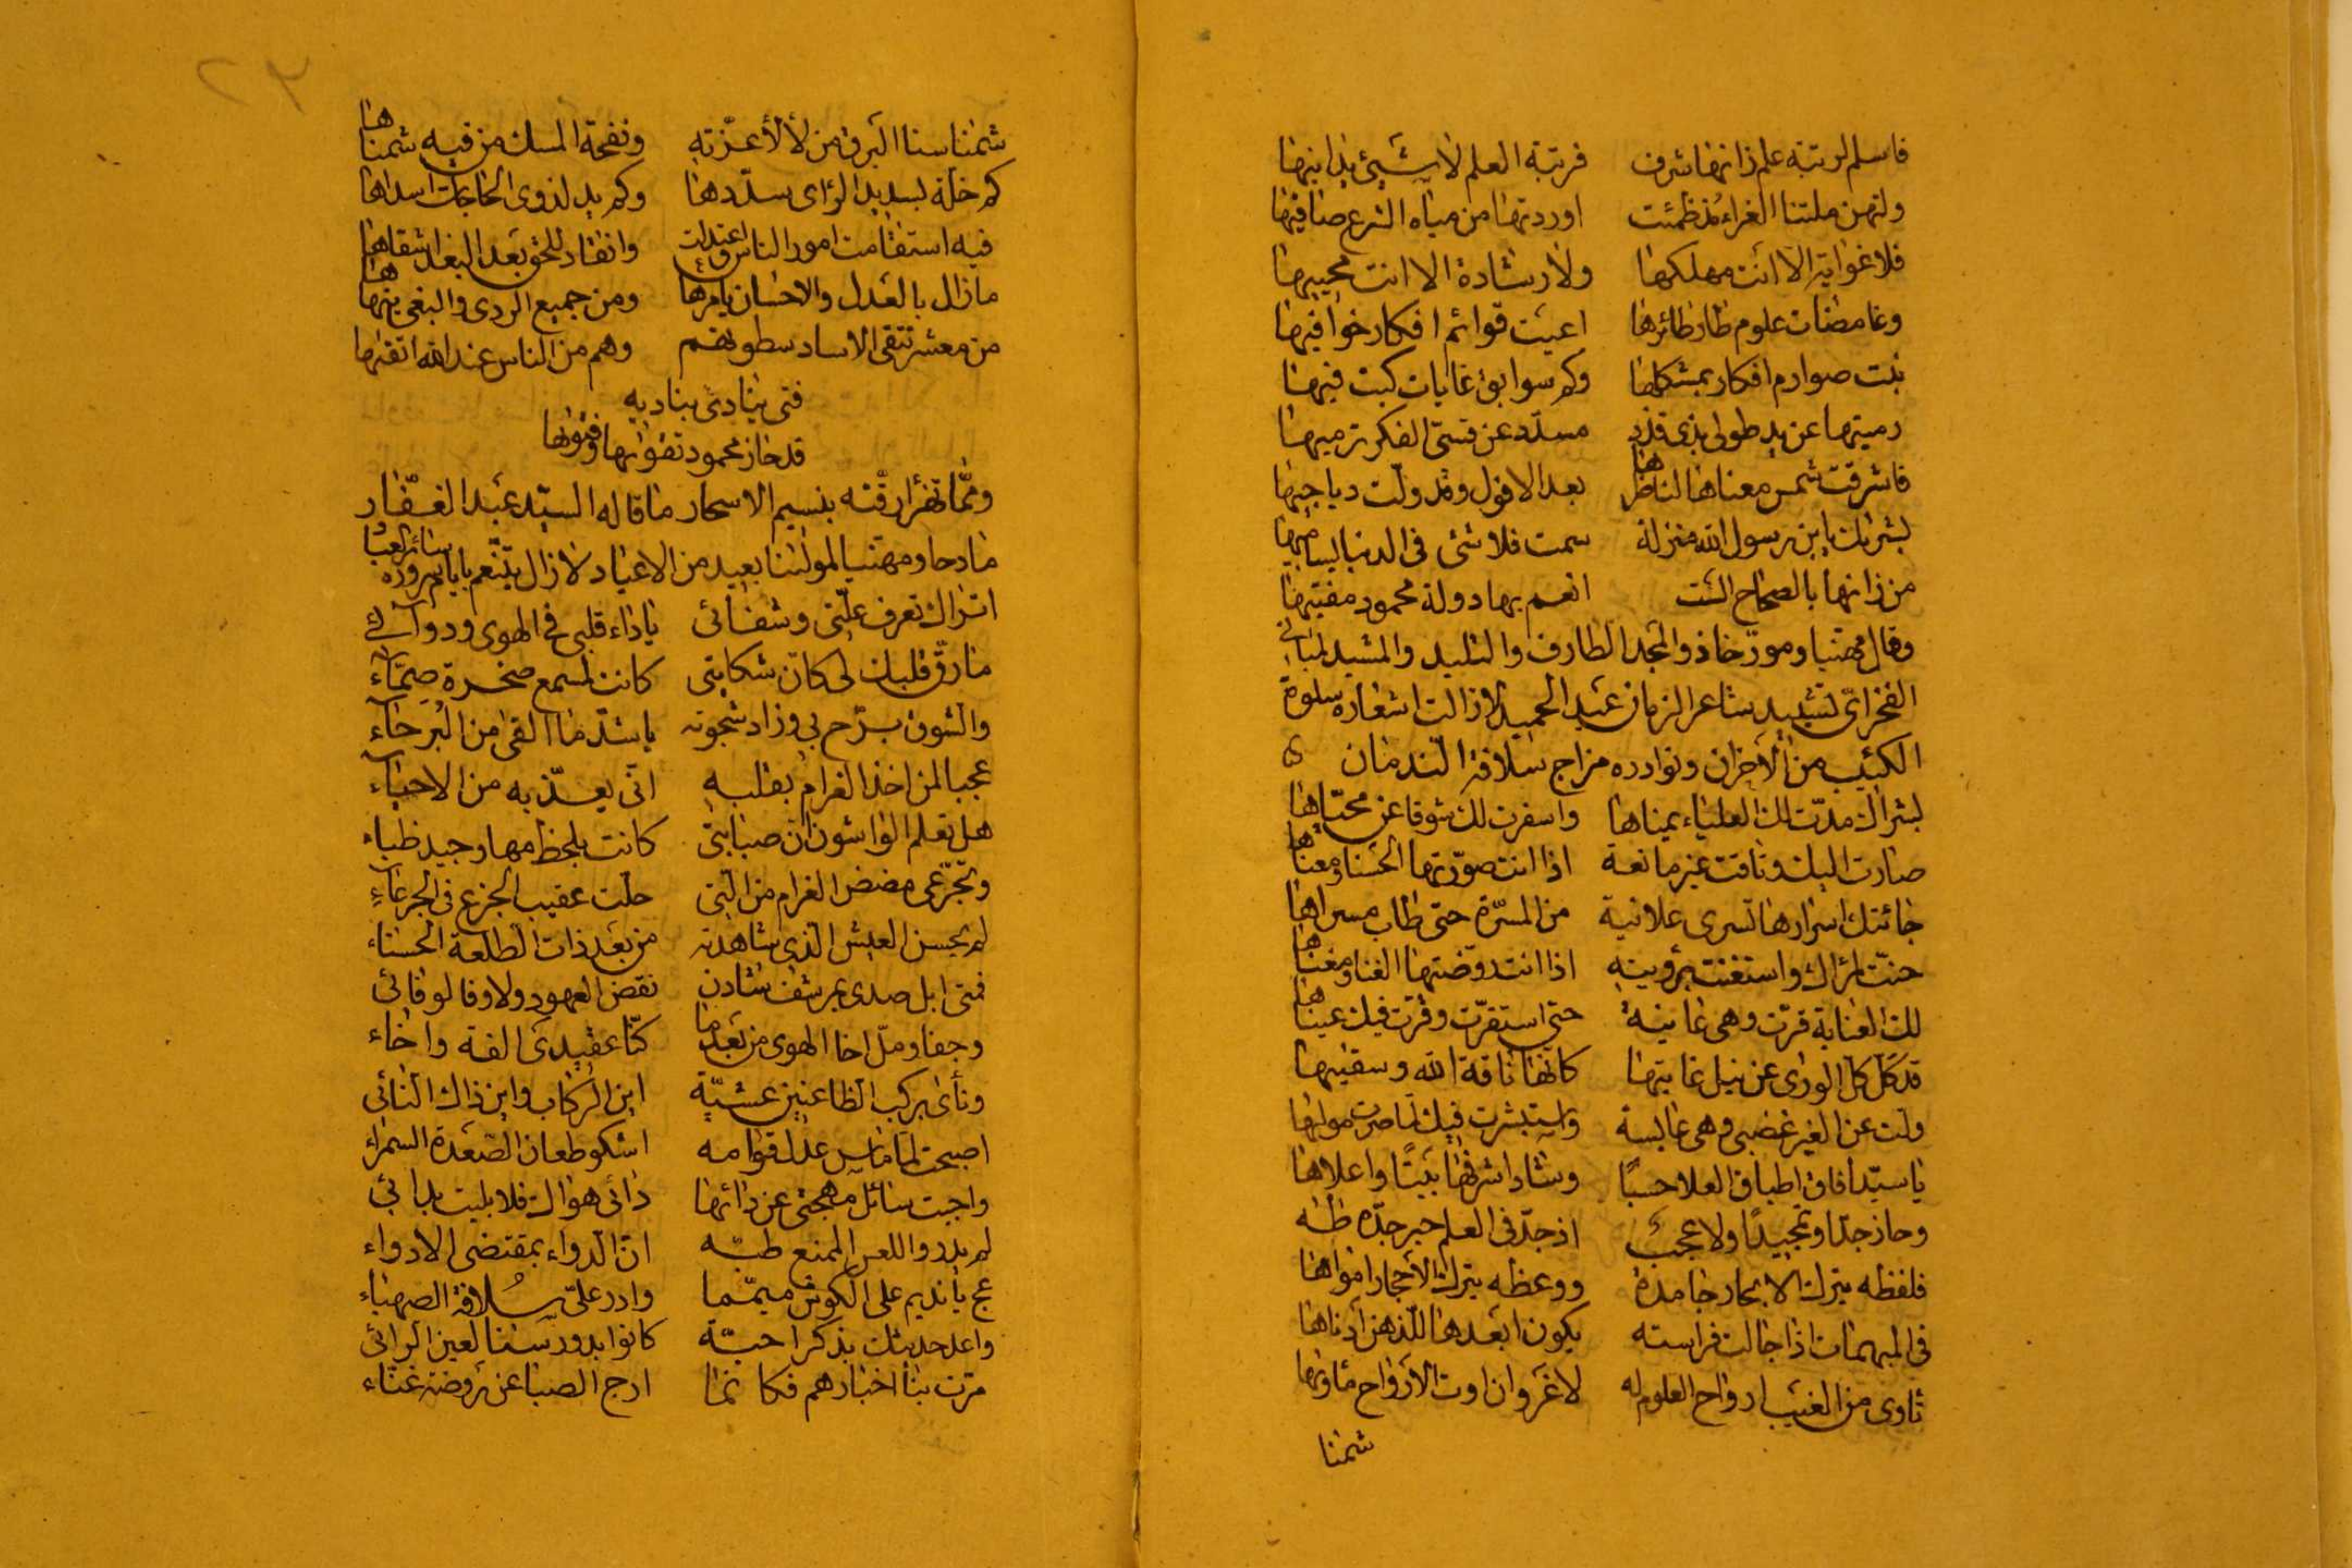 فاسلم لرتبة علم زانها شرف فرتبة العلم لا شيئ يدانيها
ولتهن ملتنا الغراء مذ ظمئت اوردتها من مياه الشرع صافيها
فلا غواية الا انت مهلكها ولا رشادة الا انت محييها
وغامضات علوم طار طائرها اعيت قوائم افكار خوافيها
نبت صوارم افكار بمشكلها وكم سوابق غايات كبت فيها
رميتها عن يد طولى بذي قذذ مسدد عن قسي الفكر ترميها
فاشرقت شمس معناها لناظرها بعد الافول وقد ولت دياجيها
بشراك يابن رسول الله منزلة سمت فلا شئ في الدنيا يساميها
من زانها بالصحاح الست انعم بها دولة محمود مفتيها
وقال مهنيا ومورخا ذو المجد الطارف والتليد والمشيد لمباني
الفخر اي تشييد شاعر الزمان عبد الحميد لا زالت اشعاره سلوة
الكئيب من الاحزان ونوادره مزاج سلافة الندمان
بشراك مدت لك العلياء يمناها واسفرت لك شوقا عن محياها
صارت اليك وتاقت غير مانعة اذ انت صورتها الحسنا ومعناها
جائتك اسرارها تسري علانية من المسرة حتى طاب مسراها
حنت لمرآك واستغنت برؤيته اذ انت روضتها الغنا ومغناها
لك العناية قرت وهي غانية حتى استقرت وقرت فيك عيناها
قد كل كل الورى عن نيل غايتها كانها ناقة الله وسقيها
ولت عن الغير غضبى وهي عابسة واستبشرت فيك لما صرت مولاها
يا سيدا فاق اطباق العلا حسبا وشاد اشرفها بيتا واعلاها
وحاز جدا وتمجيدا ولا عجب اذ جد في العلم حبر جده طه
فلفظه يترك الابحار جامدة ووعظه يترك الاحجار امواها
في المبهمات اذا جالت فراسته يكون ابعدها للذهن ادناها
ثاوي من الغيب ارواح العلوم له لا غرو ان اوت الارواح مثاويها
شمنا
شمنا سنا البرق من لألأ عزته ونفحة المسك من فيه شممناها
كم خلة بسديد الرأى سددها وكم يد لذوى الحاجات اسداها
فيه استقامت امور الناس واعتدلت وانقاد للحق بعد البغد اشقاها
مازال بالعدل والاحسان يأمرها ومن جميع الردى والبغى ينهاها
من معشر تتقى الاساد سطوتهم وهم من الناس عند الله اتقيها
فتى ينادى بناديه
قد حاز محمود تقواها وفتواها
ومما تهزأ رقته بنسيم الاسحار ما قاله السيد عبد الغفار
مادحا ومهنيا لمولانا بعيد من الاعياد لا زال يتنعم بايام سروره سائر العباد
اتراك تعرف علتى وشفائى ياداء قلبى في الهوى ودوآئى
مارق قلبك لى كان شكايتى كانت لمسمع صخرة صماء
والشوق برح بي وزاد شجونه ياشد ما القى من البرحاء
عجبا لمن اخذ الغرام بقلبه انى يعذبه من الاحياء
هل تعلم الواشون ان صبابتى كانت بلحظ مها وجيد ظباء
وتجرعى مضض الغرام من التى حلت عقيب الجزع فى الجرعاء
لم يحسن العيش الذى شاهدته من بعد ذات الطلعة الحسناء
فمتى ابل صدى بمرشف شادن نقض العهود ولا وفا لوفائى
وجفا ومل اخا الهوى من بعدما كنا عقيدى الفة واخاء
ونأى بركب الظاعنين عشية اين الركاب واين ذاك النائى
اصبحت لما ماس عدل قوامه اشكو طعان الصعدة السمراء
واجبت سائل مهجتى عن دائها دائى هواك فلا بليت بدائى
لم يدر واللعس الممنع طبه ان الدواء بمقتضى الادواء
عج يانديم على الكوش ميمما وادر على سلافة الصهباء
واعد حديثك بذكر احبة كانوا بدور سنا لعين الرائى
مرت بنا اخبارهم فكانما ارج الصبا عن روضة غناء